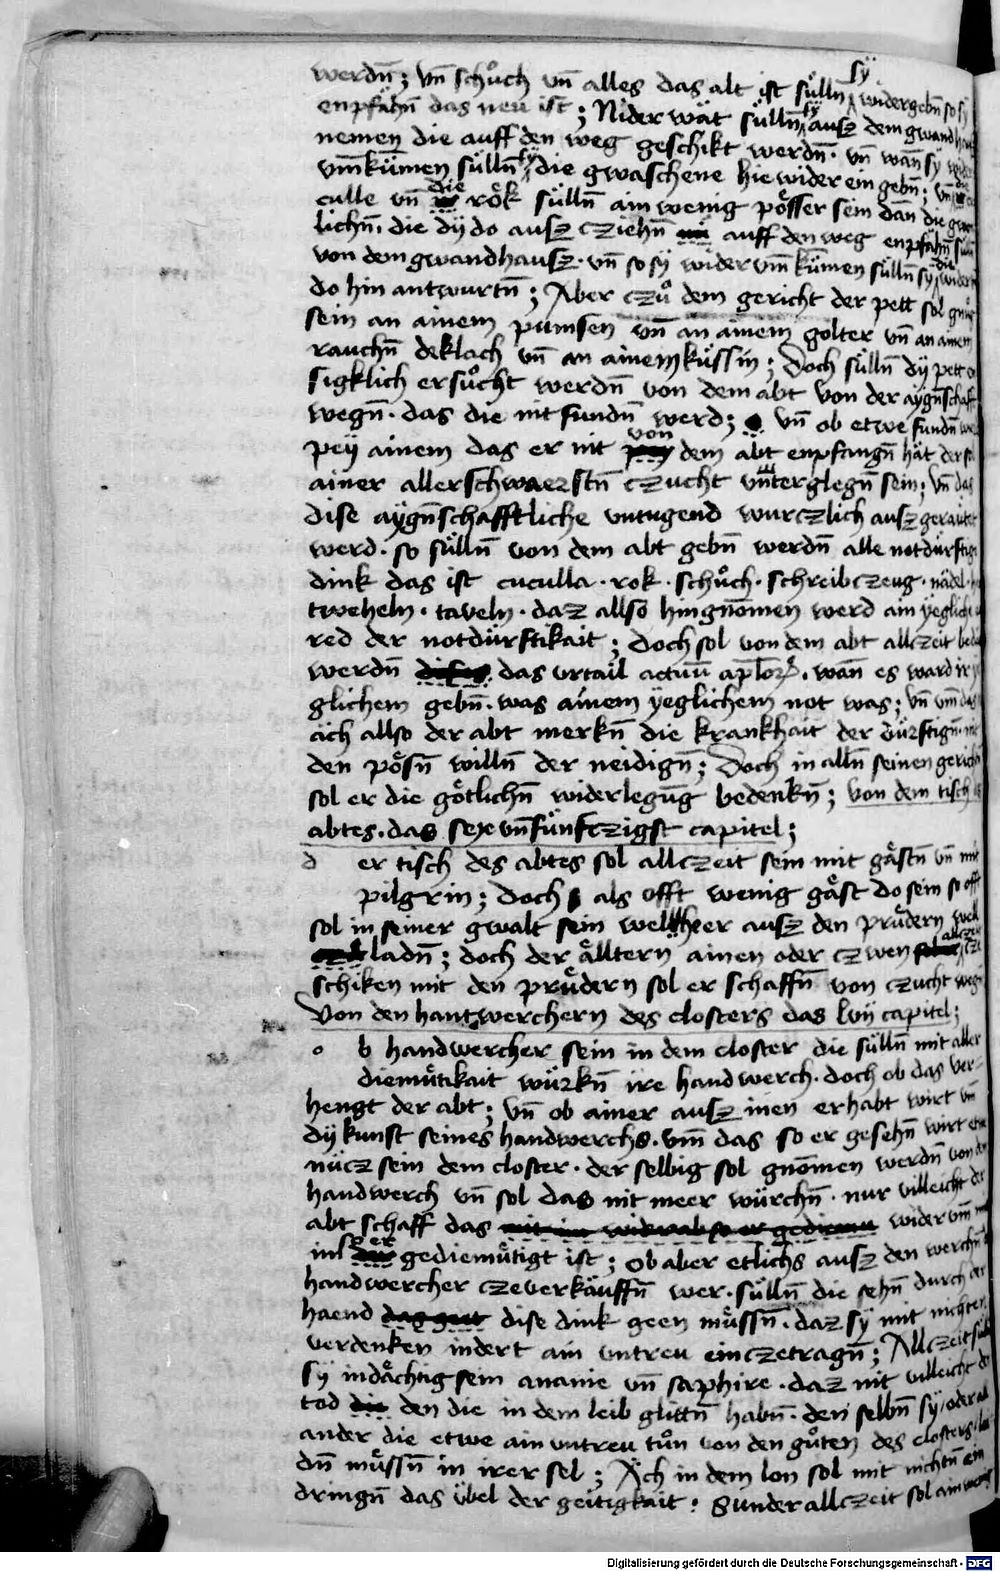 werdn̄; vn̄ schůch vn̄ alles das alt ist süllñ sy widergebn̄ so sy
enpfähn̄ das neu ist; Nider wät süllñ sy ausz dem gwandhaus
nemen die auff den weg geschikt werdn̄. vn̄ wan̄ sy wider
vm̄kümen süllñ sy die gwaschene hie wider ein gebn̄; vn̄ die
culle vn̄ die rök süllñ ain wenig pösser sein dan̄ die gwon
lichn̄. die dy do ausz cziehn̄ auff den weg enpfahn̄ süllñ
von dem gwandhausz. vn̄ so sy wider vm̄ kümen süllñ sy die wider
do hin antwurtn̄; Aber czů dem gericht der pett sol gnug
sein an ainem pumsen vn̄ an ainem golter vn̄ an ainem
rauchn̄ deklach vn̄ an ainem küssin; Doch süllñ dy pett
sigklich ersůcht werdn̄ von dem abt von der aygn̄schafft
wegn̄. das die nit fundn̄ werd; vn̄ ob etwe fundn̄
pey ainem das er nit von dem abt enpfangn̄ hät der sol
ainer allerschwaerstn̄ czucht vnterglegn̄ sein; vn̄ das
dise aygn̄schafftliche untugend wurczlich ausz geraütet
werd. so süllñ von dem abt gebn̄ werdn̄ alle notdürftige
dink das ist cuculla. rok. schůch. schreibczeug. nädel.
tweheln. taveln. daz allso hingnōmen werd ain yegliche
red der notdürftikait; doch sol von dem abt allczeit bedacht
werdn̄ das urtail actuū aplor̄. wan̄ es ward ir
glichem gebn̄. was ainem yeglichem not was; vn̄ vm̄ das
äch allso der abt merkn̄ die krankhait der dürftign̄. nit
den pösn̄ willn̄ der neidign̄; Doch in alln̄ seinen gerichtn̄
sol er die götlichn̄ widerlegūg bedenkn̄; Von dem tisch des
abtes. das sexevn̄fünfczigst capitel;
d er tisch des abtes sol allczeit sein mit gästn̄ vn̄ mit
pilgrin; doch als offt wenig gäst do sein so offt
sol in seiner gwalt sein welcher ausz den prüdern well
ladn̄; doch der älltern ainen oder czwen allczeit cze
schiken mit den prüdern sol er schaffn̄ von czucht wegn̄
Von den hantwerchern des closters das lvij capitel;
o b handwercher sein in dem closter die süllñ mit aller
diemütikait würkn̄ ire handwerch. doch ob das ver-
hengt der abt; vn̄ ob ainer ausz inen erhabt wirt vm̄
dy kunst seines handwerchs. vm̄ das so er gesehn̄ wirt etwe
nücz sein dem closter. der selbig sol gnōmen werdn̄ von dem
handwerch vn̄ sol das nit meer würchn̄. nur villeicht der
abt schaff das mit im widerab so er gediemu wider vm̄
ins so er gediemütigt ist; ob aber etlichs ausz den werchn̄ der
handwercher czeverkäuffn̄ wer. süllñ die sehn̄ durch der
haend das gut dise dink geen müssn̄. daz sy mit nichten
verdenken indert ain untreu einczetragn̄; Allczeit süllñ
sy indächtig sein ananie vn̄ saphire. daz nit villeicht der
tod den die in dem leib glittn̄ habn̄. den selbn̄ sy. oder all
ander die etwe ain untreu tůn von den gůten des closters. lei
dn̄ müssn̄ in irer sel; Äch in dem lon sol mit nichtn̄ ein
dringn̄ das übel der geitigkait: Sunder allczeit sol ain wenig
Digitalisierung gefördert durch die Deutsche Forschungsgemeinschaft - DFG